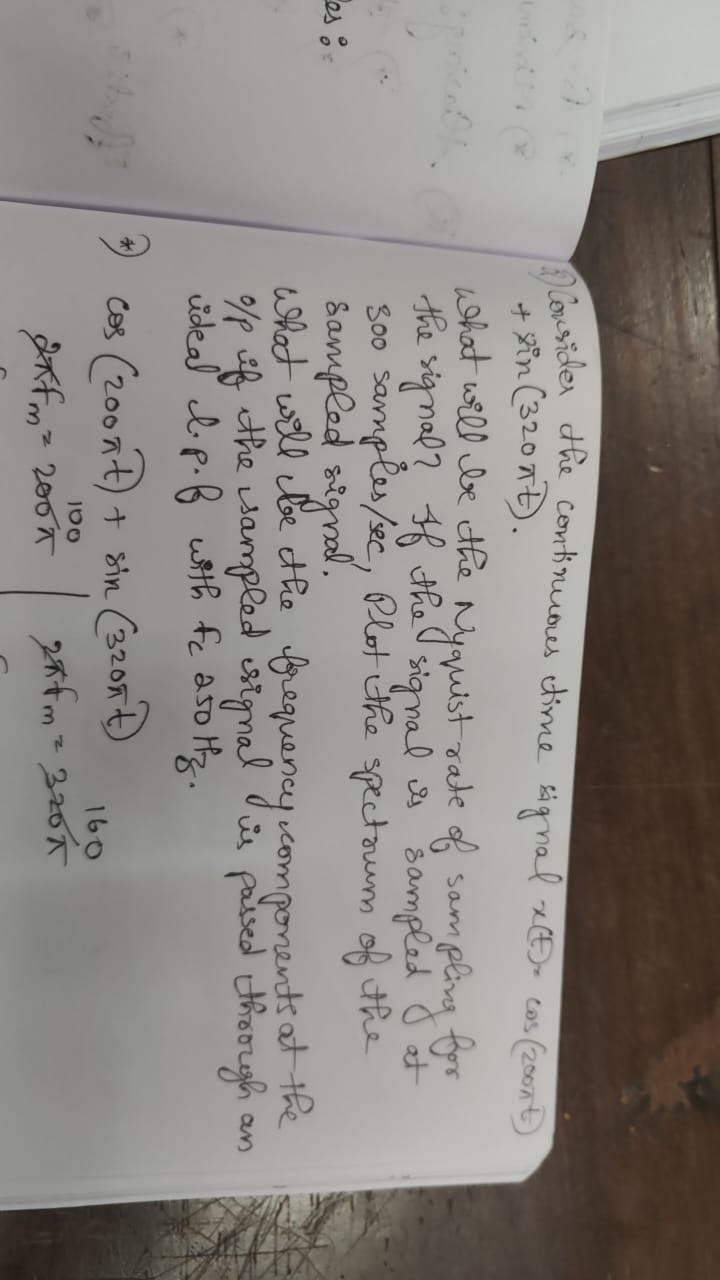 des :-
Consider the continuous time signal x(t) = cos(200πt)
+ sin(320πt).
What will be the Nyquist rate of sampling for
the signal? If the signal is sampled at
300 samples/sec, Plot the spectrum of the
sampled signal.
What will be the frequency components at the
o/p if the sampled signal is passed through an
ideal l.p.f with fc 250 Hz.
*) cos(200πt) + sin(320πt)
100 160
2πfm = 200π | 2πfm = 320π